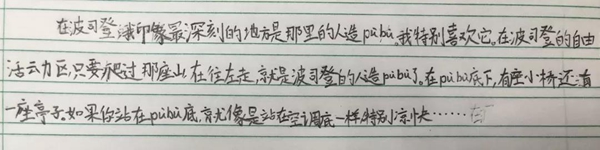 在波司登我印象最深刻的地方是那里的人造pùbù。我特别喜欢它。在波司登的自由
活云力区,只要爬过那座山,在往左走,就是波司登的人造pùbù了。在pùbù底下,有座小桥还有
一座亭子。如果你站在pùbù底,就像是站在空调底一样,特别凉快……